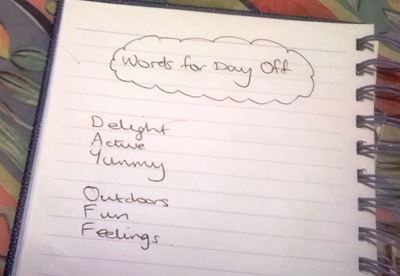 Words for Day Off
Delight
Active
Yummy
Outdoors
Fun
Feelings.